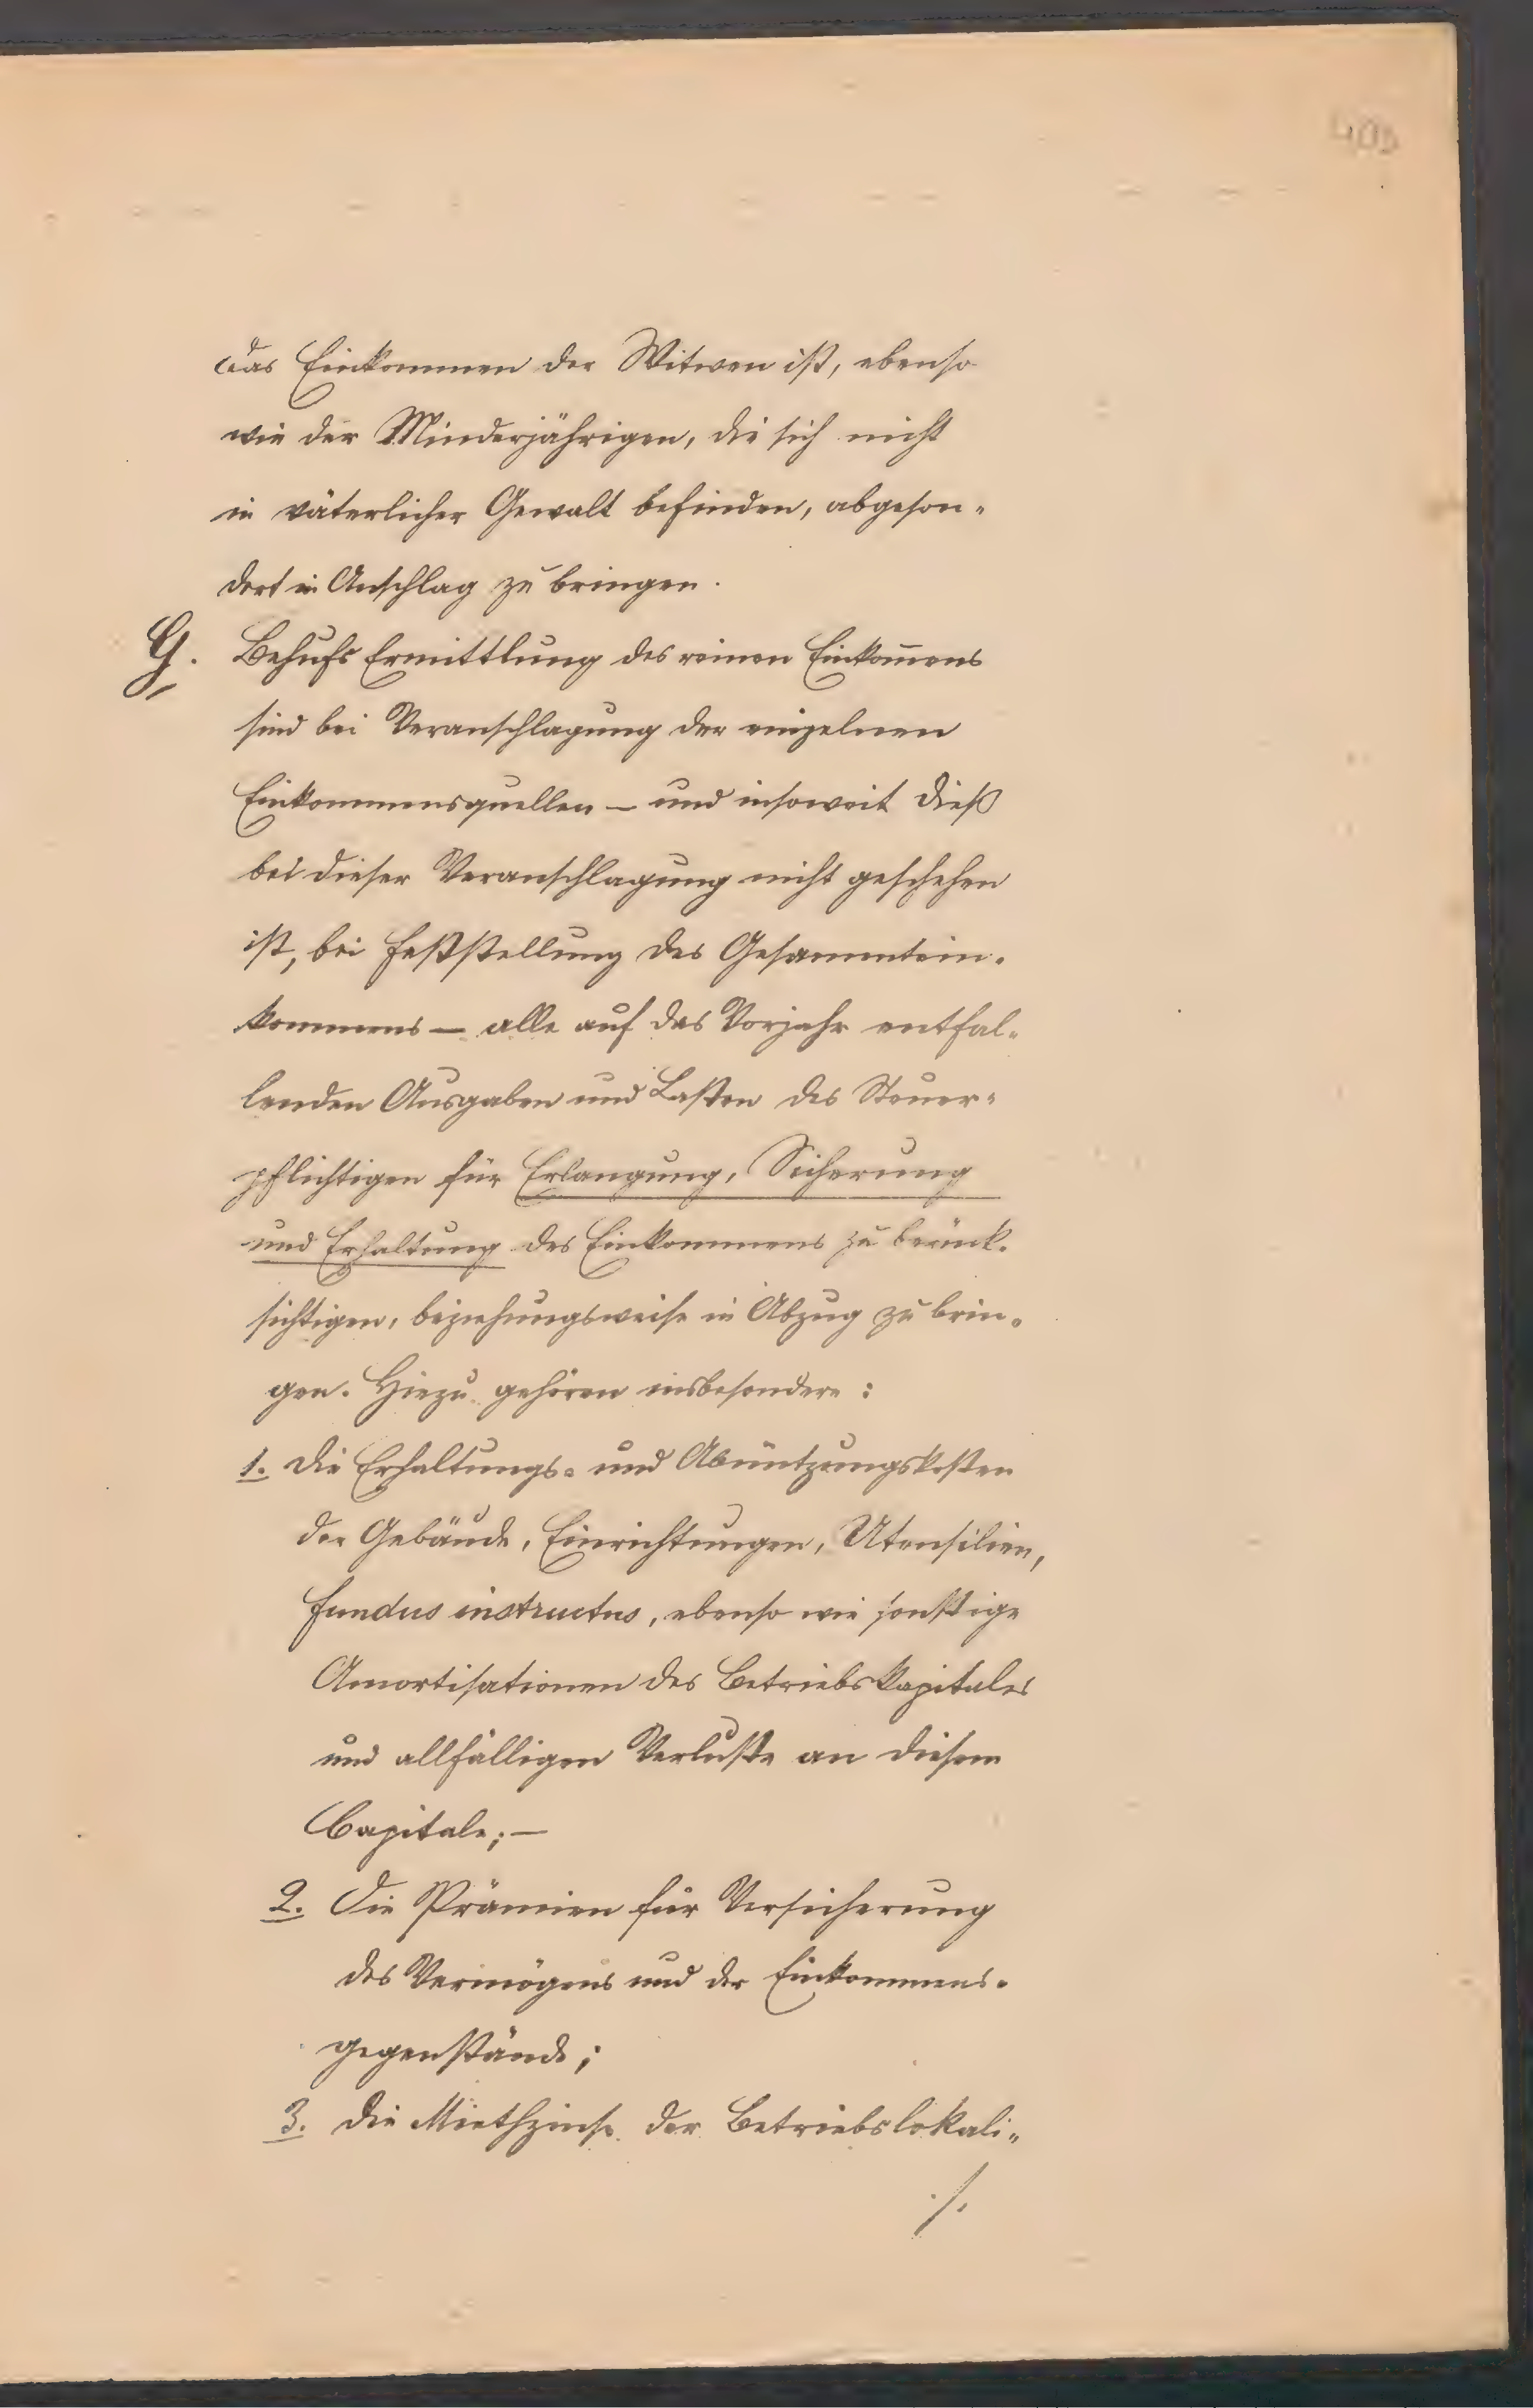 das Einkommen der Witwen ist, ebenso
wie der Minderjährigen, die sich nicht
in väterlicher Gewalt befinden, abgeson-
dert in Anschlag zu bringen.
G. Behufs Ermittlung des reinen Einkom̅ens
sind bei Veranschlagung der einzelnen
Einkommensquellen – und insoweit dieß
bei dieser Veranschlagung nicht geschehen
ist, bei Feststellung des Gesammtein-
kommens – alle auf das Vorjahr entfal-
lenden Ausgaben und Lasten des Steuer-
pflichtigen für Erlangung, Sicherung
und Erhaltung des Einkommens zu berück-
sichtigen, beziehungsweise in Abzug zu brin-
gen. Hiezu gehören insbesondere:
1. die Erhaltungs- und Abnützungskosten
der Gebäude, Einrichtungen, Utensilien,
fundus instructus, ebenso wie sonstige
Amortisationen des Betriebskapitales
und allfälligen Verluste an diesem
Capitale; –
2. Die Prämien für Versicherung
des Vermögens und der Einkommens-
gegenstände;
3. die Miethzinse der Betriebslokali-
./.